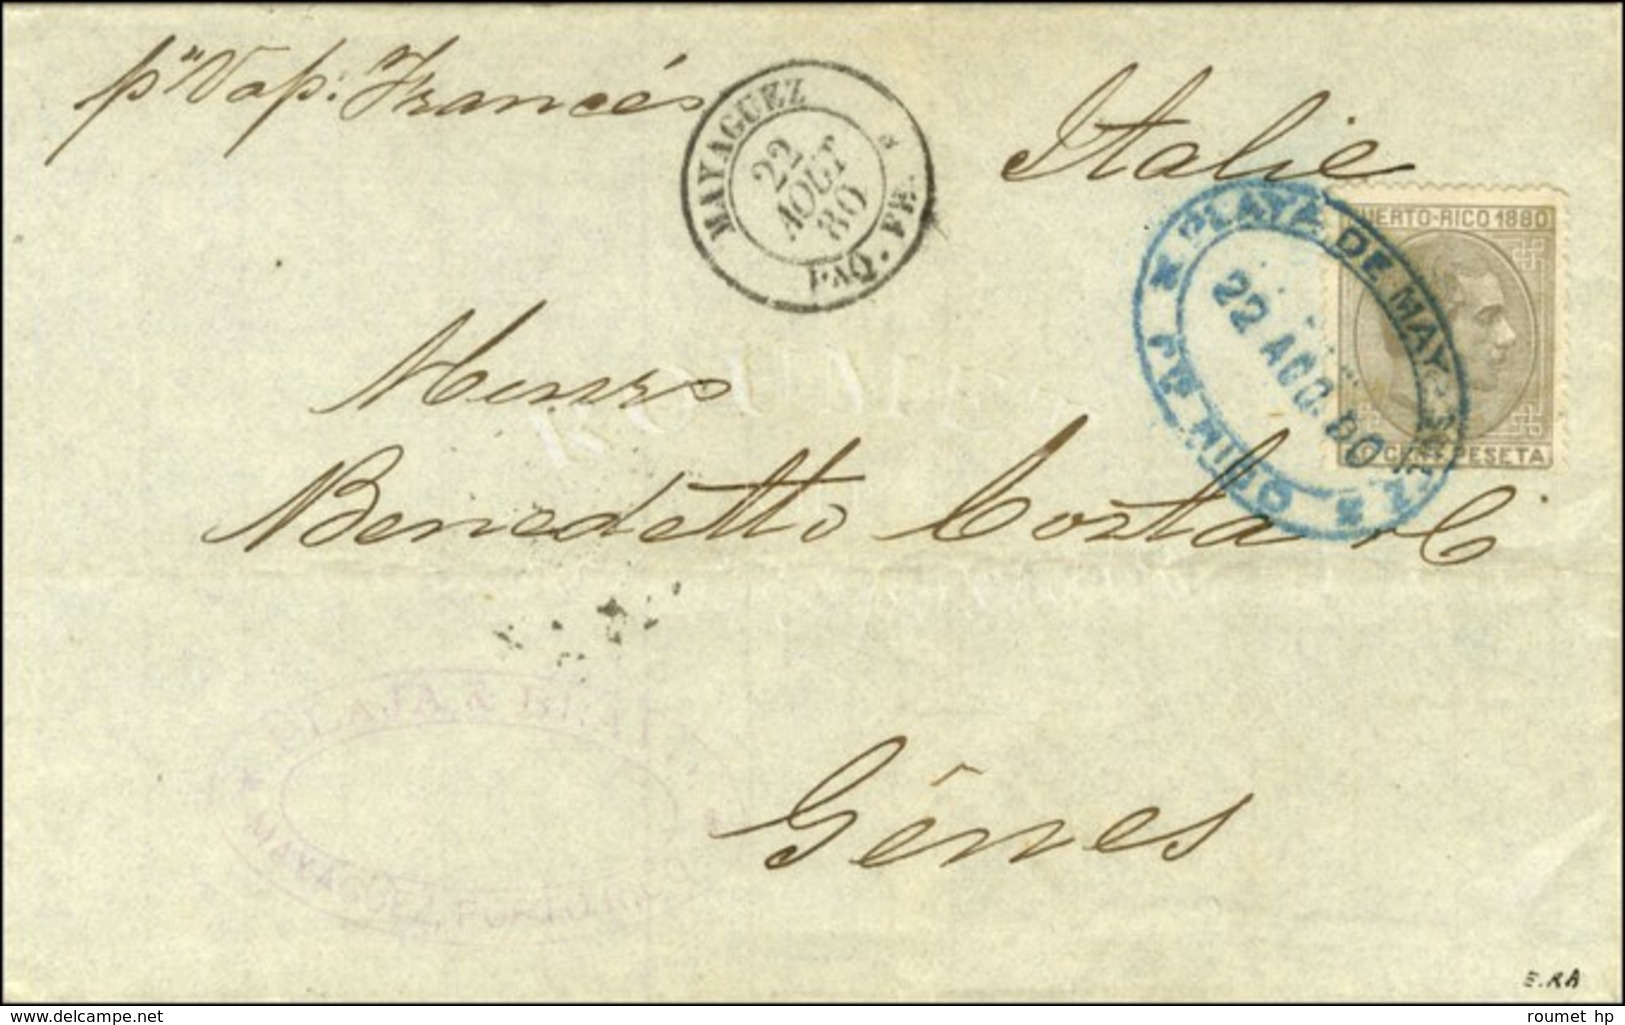 pr Vap: Francés
MAYAGUEZ
22
AOUT
80
PAQ. FR.
Italie
PUERTO-RICO 1880
CENT PESETA
PLAYA DE MAYAGUEZ
22 AGO. 80
Messrs
Benedetto Costa & C
PLAJA &
MAYAGUEZ, PUERTO RICO
Gênes
E. RA
www.delcampe.net
roumet hp